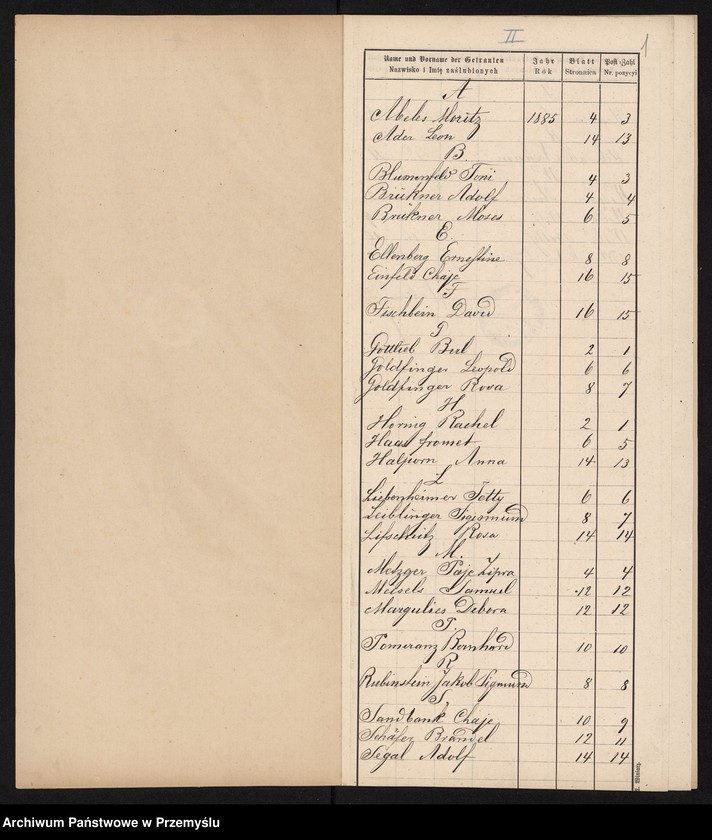 II
1
Name und Vorname der Getrauten Jahr Blatt Post-Zahl
Nazwisko i Imię zaślubionych Rok Stronnica Nr. pozycyi
A
Abeles Moritz 1885 4 3
Ader Leon 14 13
B.
Blumenfeld Toni 4 3
Brükner Adolf 4 4
Brükner Moses 6 5
E.
Ellenberg Ernestine 8 8
Einfeld Chaje 16 15
F
Fischbein David 16 15
G
Gottlieb 2 1
Goldfinger Leopold 6 6
Goldfinger Rosa 8 7
H
Hornig Rachel 2 1
Haas Fromet 6 5
Halporn Anna 14 13
L
Liebenheimer Jetty 6 6
Leiblinger Sigismund 8 7
Lifschütz Rosa 14 14
M.
Metzger Zipra 4 4
Meisels Samuel 12 12
Margulies Debora 12 12
P.
Pomeranz Bernhard 10 10
R
Rubinstein Jakob Sigmund 8 8
S.
Sandbank Chaje 10 9
Schäfer Brandel 12 11
Segal Adolf 14 14
Archiwum Państwowe w Przemyślu